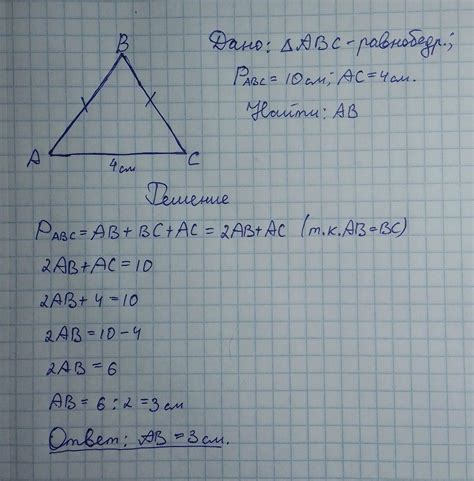 B
Дано: △ABC - равнобедр.;
P_ABC = 10 см; AC = 4 см.
Найти: AB
A
4 см
C
Решение
P_ABC = AB + BC + AC = 2AB + AC (т.к. AB = BC)
2AB + AC = 10
2AB + 4 = 10
2AB = 10 - 4
2AB = 6
AB = 6 : 2 = 3 см
Ответ: AB = 3 см.